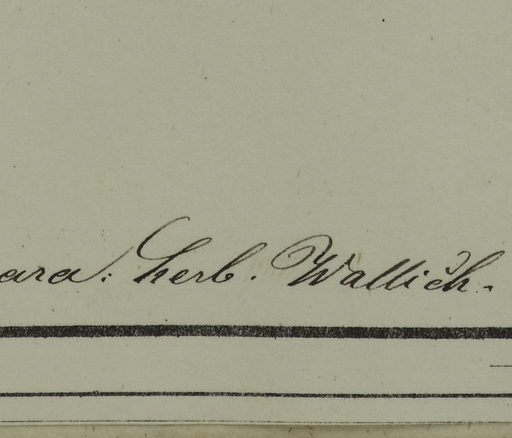 ara: herb. Wallich.